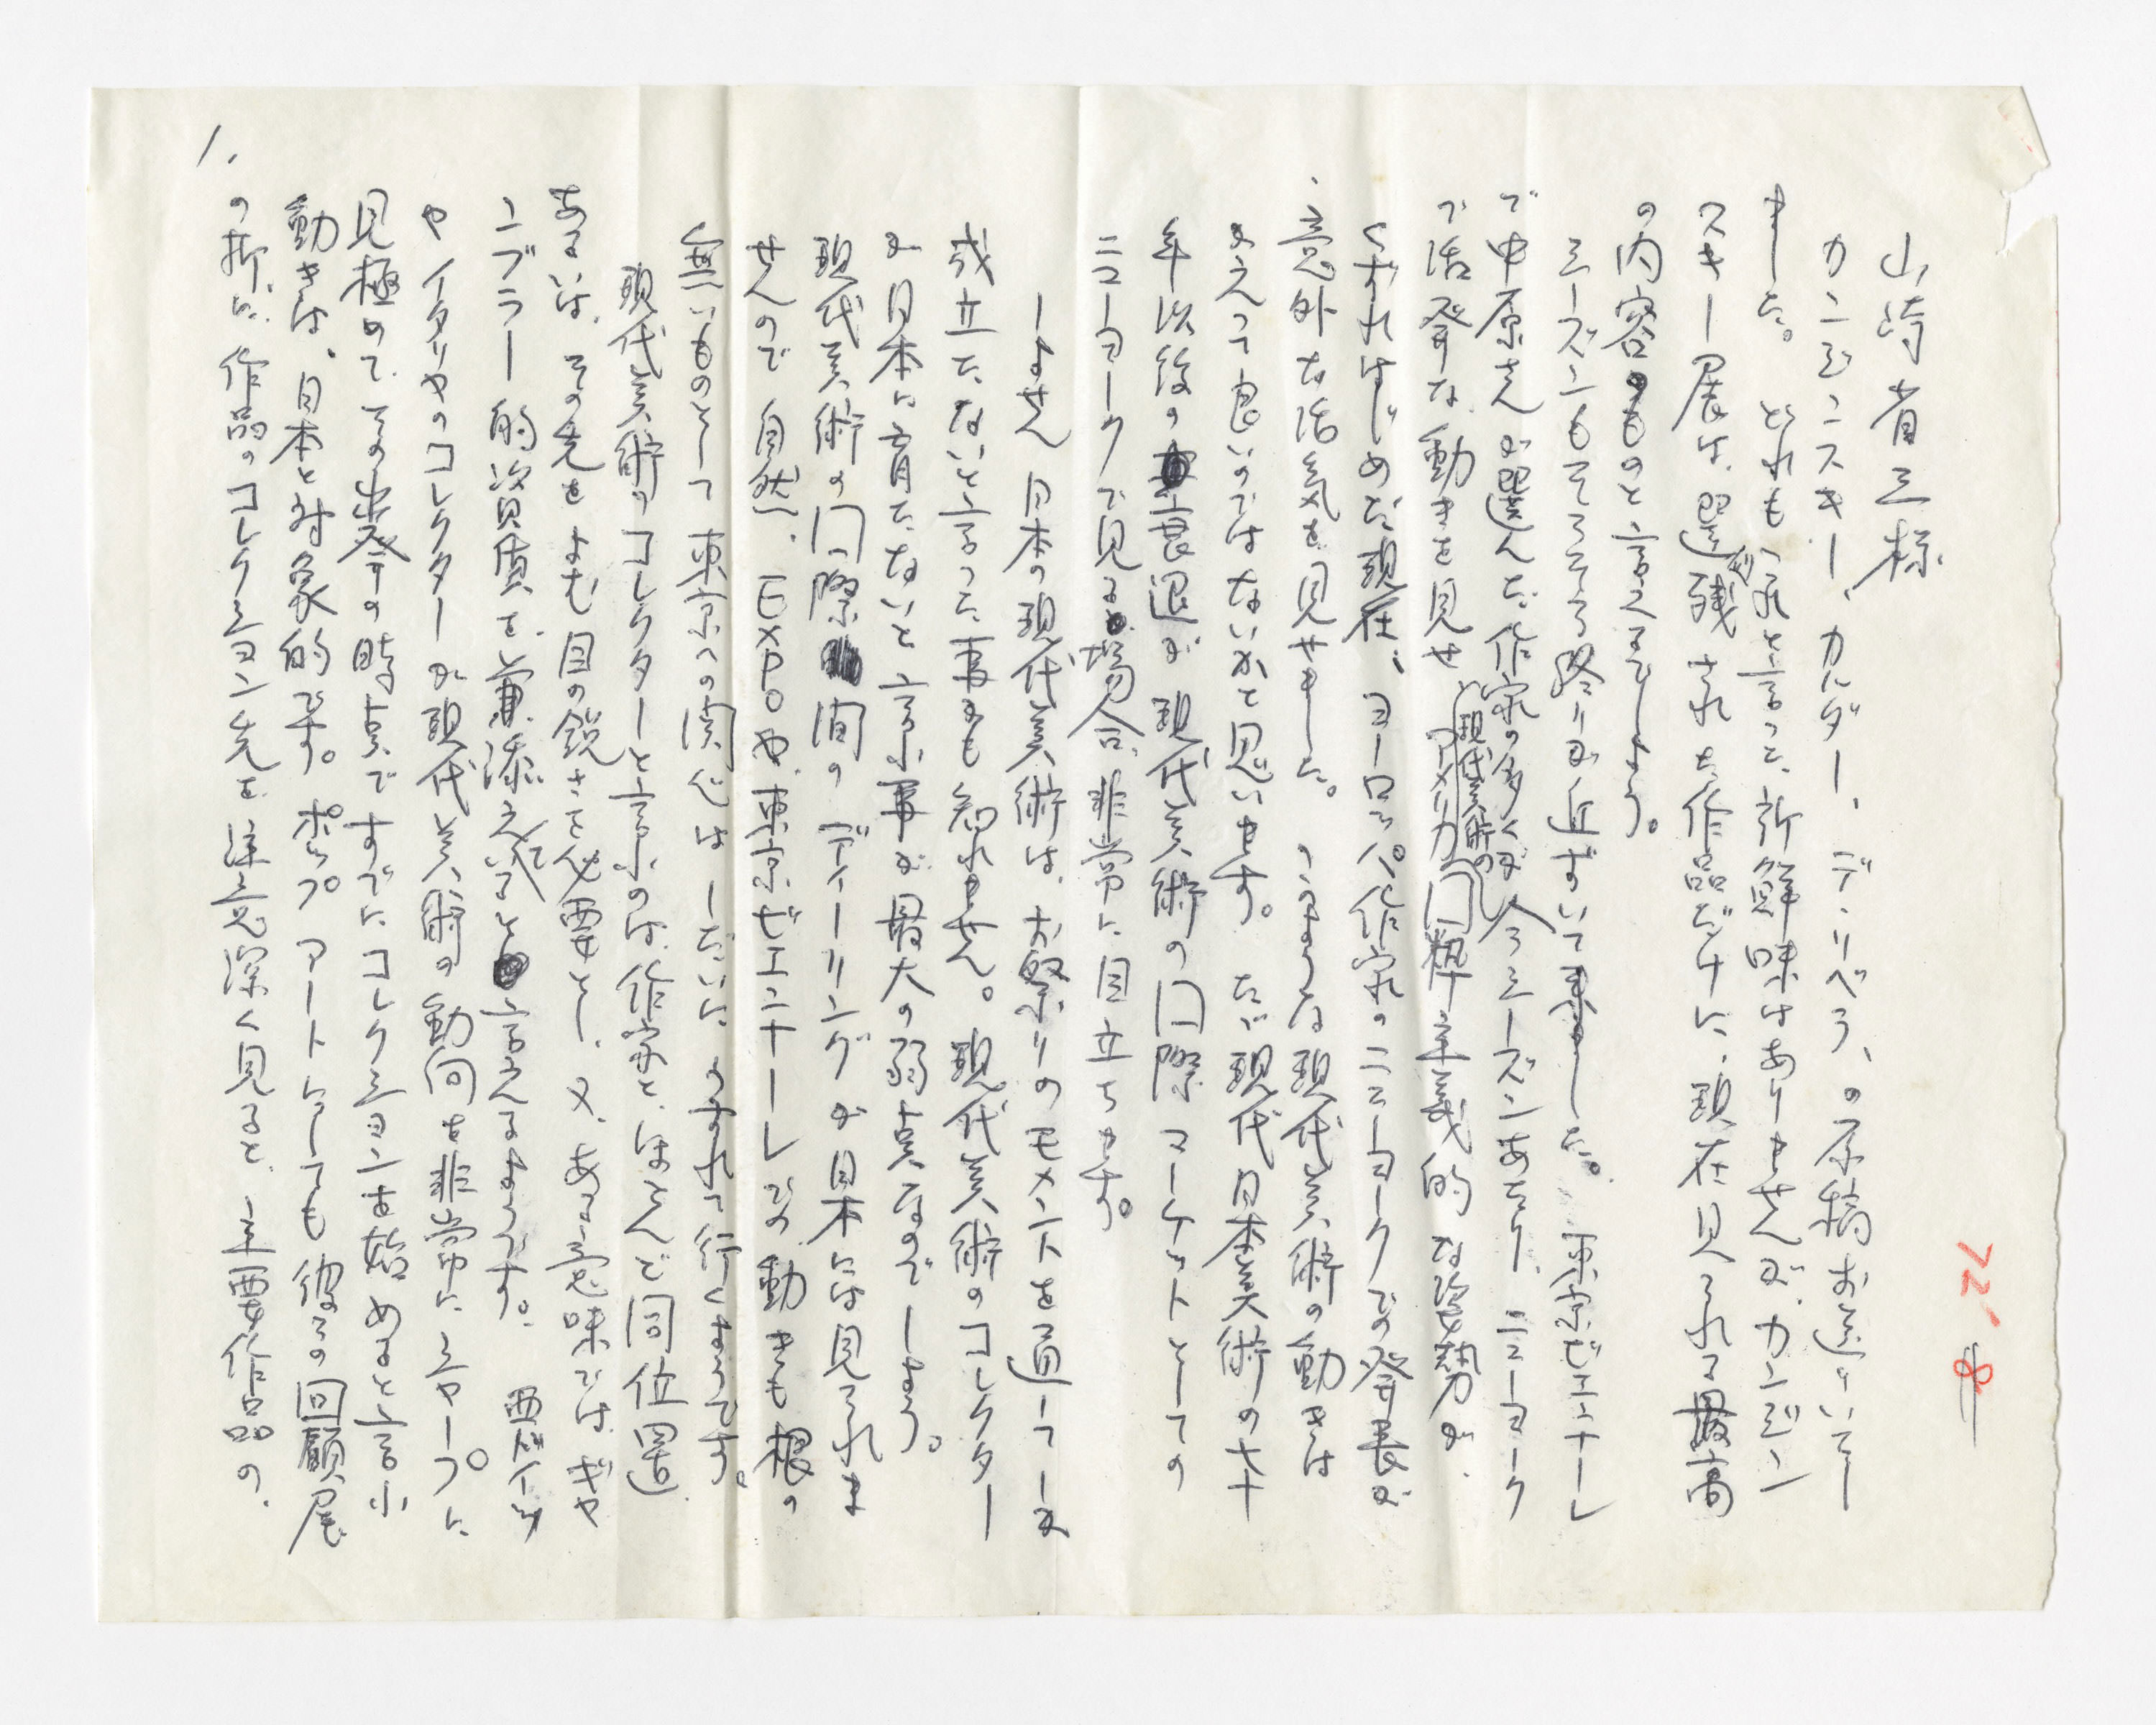 山崎省三様
カンヂンスキー、カルダー、デ・リベラ、の原稿お送りいたし
ました。どれもこれと言った新鮮味はありませんが、カンヂン
スキー展は、選び残された作品だけに、現在見られる最高
の内容のものと言えるでしょう。
シーズンもそろそろ終りに近ずいて来ました。東京ビエンナーレ
で中原さんが選んだ作家の多くが今シーズンあたり、ニューヨーク
で活発な動きを見せ、現代美術の門粋主義的な姿勢が、
くずれはじめた現在、ヨーロッパ作家のニューヨークでの発表が
意外な活気を見せました。このような現代美術の動きは
かえって良いのではないかと思います。ただ現代日本美術の七十
年以後の衰退が現代美術の门際マーケットとしての
ニューヨークで見る場合、非常に目立ちます。
しょせん日本の現代美術は、お祭りのモメントを通してしか
成立たないと言った事かも知れません。現代美術のコレクター
が日本に育たないと言ふ事が最大の弱点なのでしょう。
現代美術の门際間のディーリングが日本には見られま
せんので自然、EXPOや東京ビエンナーレでの動きも根の
無いものとして東京への関心はしだいにうすれて行くようです。
現代美術のコレクターと言ふのは、作家と、ほとんど同位置
あるいは、その先をよむ目の鋭さを必要とし、又、ある意味では、ギャ
ンブラー的資質を、兼添えていると言えるようです。西ドイツ
やイタリヤのコレクターが現代美術の動向を非常にシャープに
見極めて、その出発の時点ですでにコレクションを始めると言ふ
動きは、日本と対象的です。ポップアートにしても彼らの回顧展
の折に、作品のコレクション先を注意深く見ると、主要作品の、
1.
72.8中